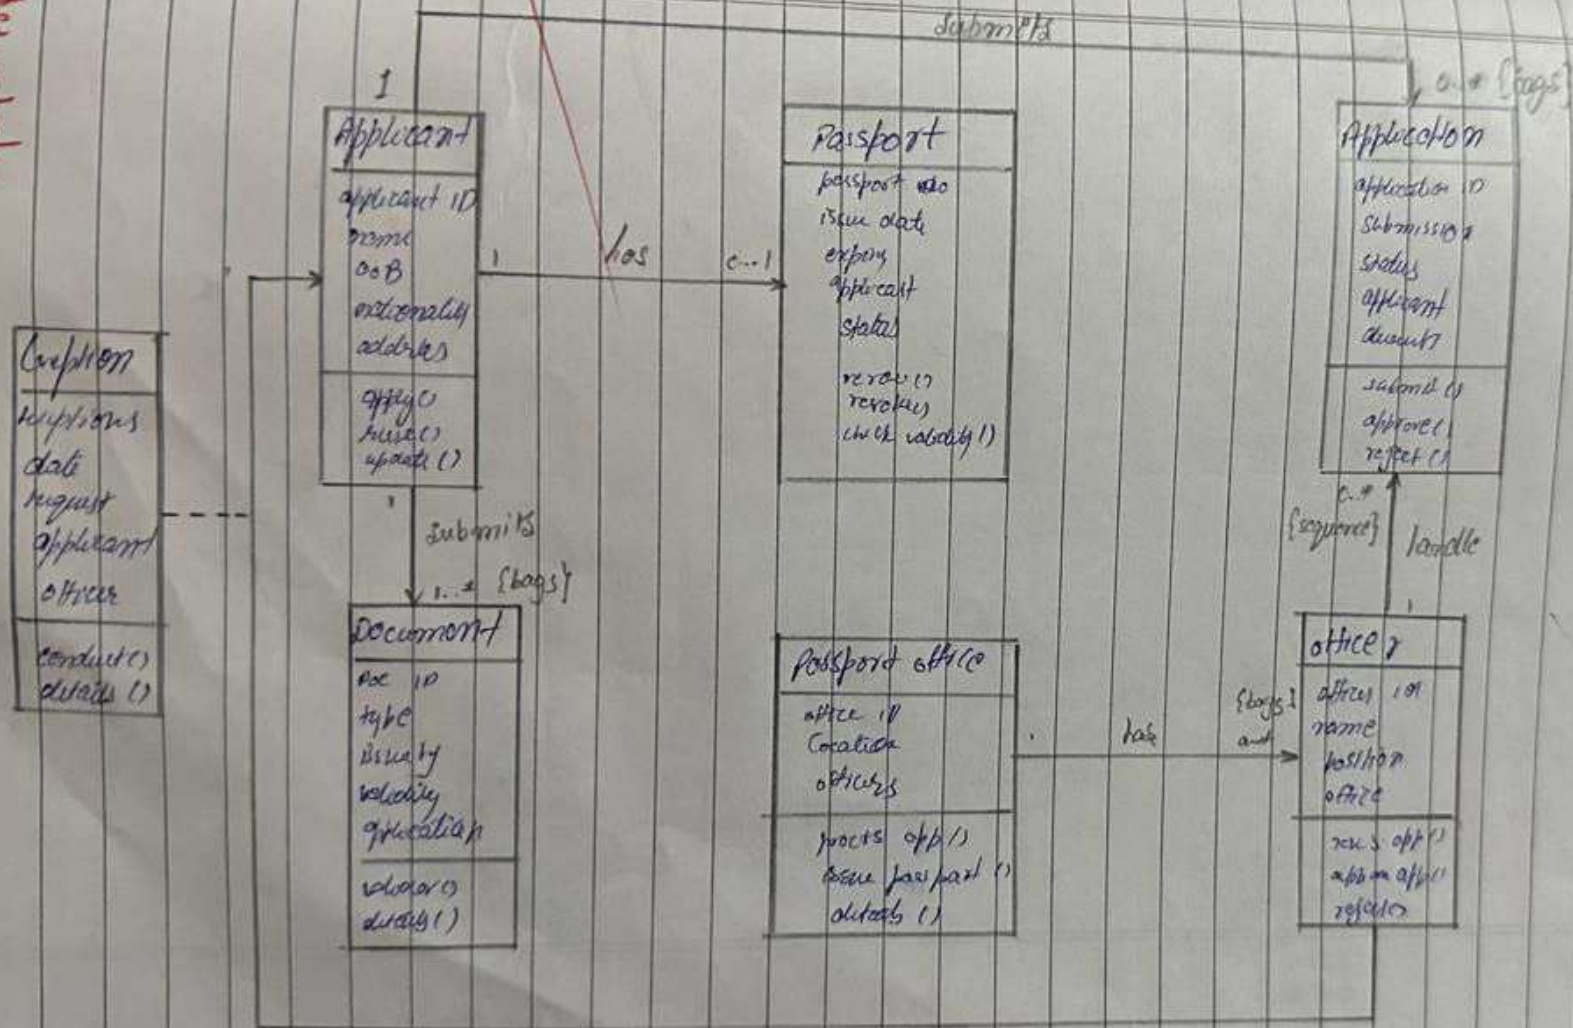 submits
1
0...* {bags}
Applicant
applicant ID
name
DOB
nationality
address
apply()
update()
1
has
0...1
Passport
passport no
issue date
expiry
applicant
status
renew()
revoke()
check validity()
Application
application ID
submission
status
applicant
submit()
approve()
reject()
0..*
{sequence}
handle
1
date
request
applicant
officer
conduct()
details()
1
submits
1...* {bags}
Document
Doc ID
type
validity
application
details()
Passport office
office ID
Location
officers
process app()
issue passport()
details()
has
{bags}
officer
officer ID
name
position
office